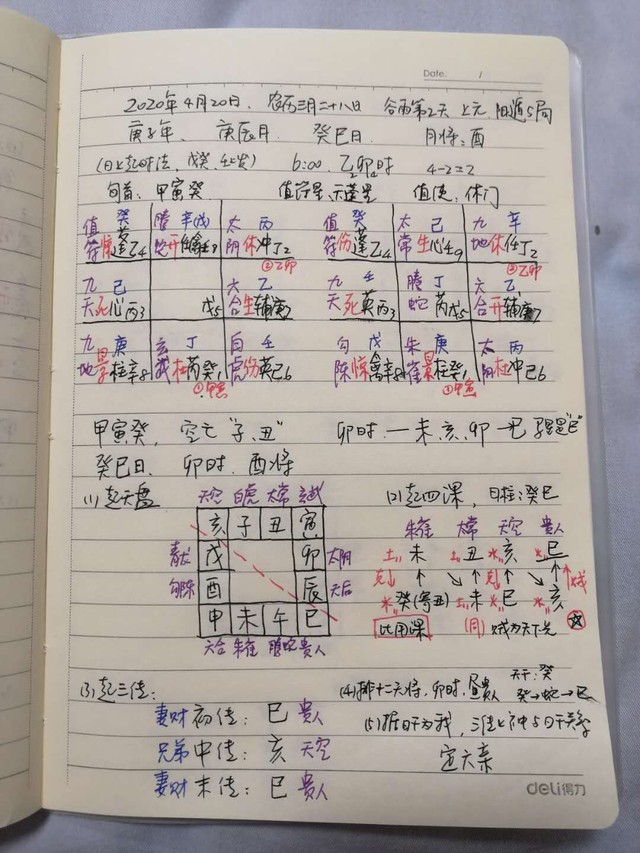 Date. /
2020年4月20日、农历三月二十八日 谷雨第2天 上元 阳遁5局
庚子年、庚辰月、癸巳日 月将:酉
(日上起时法,戊癸,壬发) 6:00、乙卯时 4-2=2
旬首:甲寅癸 值符星:天蓬星 值使:休门
值 癸 螣 辛戊 太 丙 值 癸 太 己 九 辛
符惊蓬乙4 蛇开任禽壬9 阴休冲丁2 符伤蓬乙4 常生心壬9 地休任丁2
②乙卯 ②乙卯
九 己 六 乙 九 壬 螣 丁 六 乙
天死心丙3 戊5 合生辅庚7 天死英丙3 蛇芮戊5 合开辅庚7
九 庚 玄 丁 白 壬 勾 戊 朱 庚 太 丙
地景柱辛8 武杜芮癸1 虎伤英己6 陈惊禽辛8 雀景柱癸1 阴杜冲己6
①甲寅 ①甲寅
甲寅癸,空亡"子、丑" 卯时.—未、亥、卯—巳
癸巳日、卯时、酉将
(1)起天盘 天空 白虎 太常 玄武 (2)起四课,日柱:癸巳
亥 子 丑 寅 朱雀 太常 天空 贵人
青龙 戌 卯 太阴 土、未 土、丑 水、亥 火、巳
勾陈 酉 辰 天后 克 ↑ ↘ ↑ 克 ↑ ↘ ↑ ↑ 贼
申 未 午 巳 水、癸(寄丑) 土、未 火、巳 水、亥
六合 朱雀 螣蛇 贵人 比用课 (同) 贼为天下先
(3)起三传: (4)排十二天将,卯时,昼贵人 天干:癸
癸→蛇→巳
妻财 初传:巳 贵人 (5)据日干为我,三传上神与日干关系
兄弟 中传:亥 天空 定六亲
妻财 末传:巳 贵人
deli得力